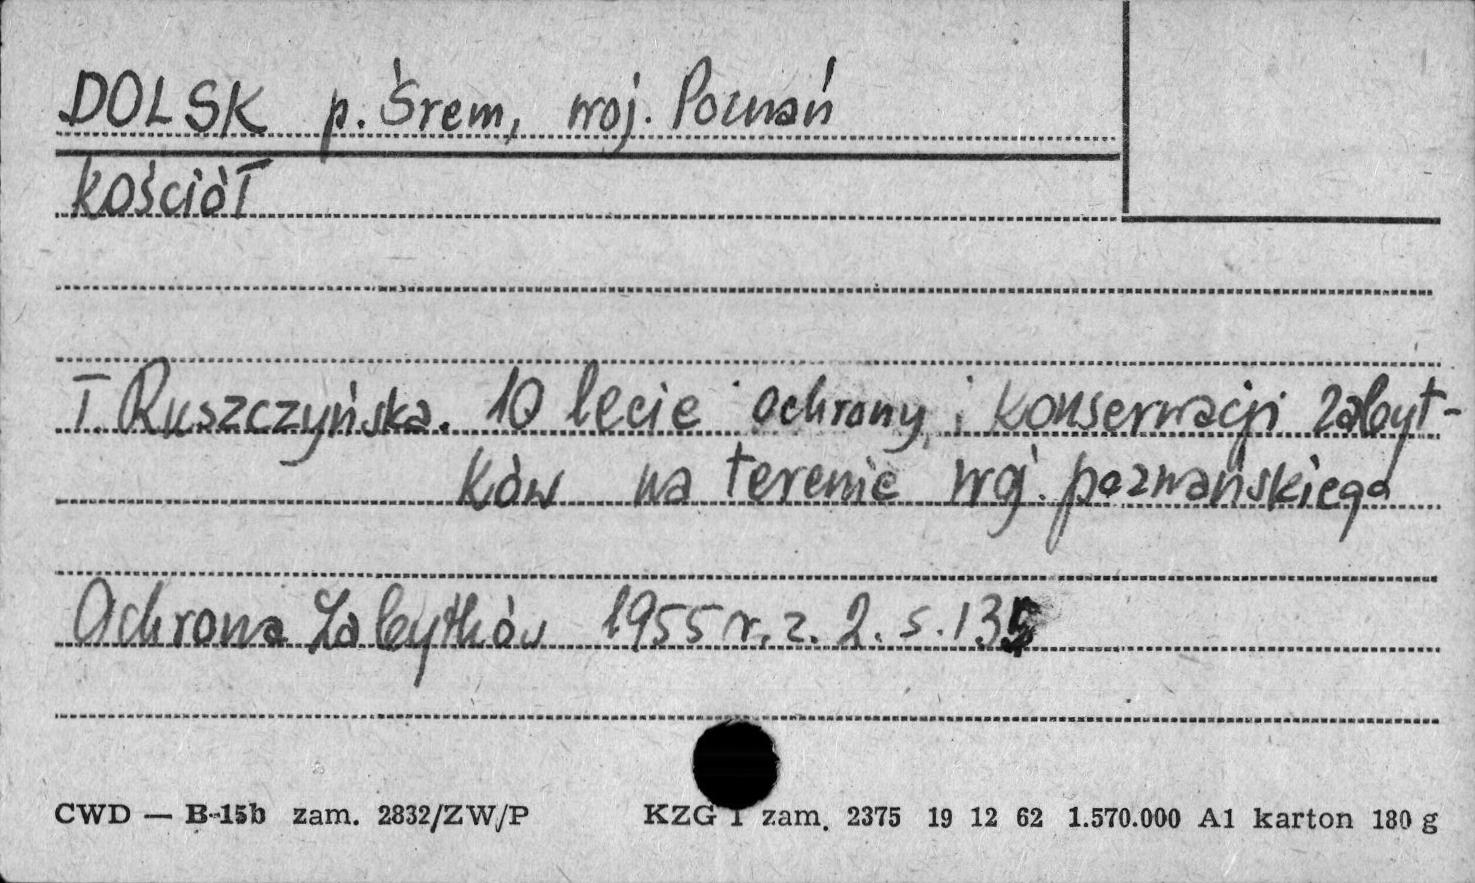 DOLSK p. Śrem, woj. Poznań
kościół
T. Ruszczyńska. 10 lecie ochrony i konserwacji zabyt-
ków na terenie woj. poznańskiego
Ochrona Zabytków 1955 r. z. 2. s. 135
CWD — B-15b zam. 2832/ZW/P KZG 1 zam. 2375 19 12 62 1.570.000 A1 karton 180 g